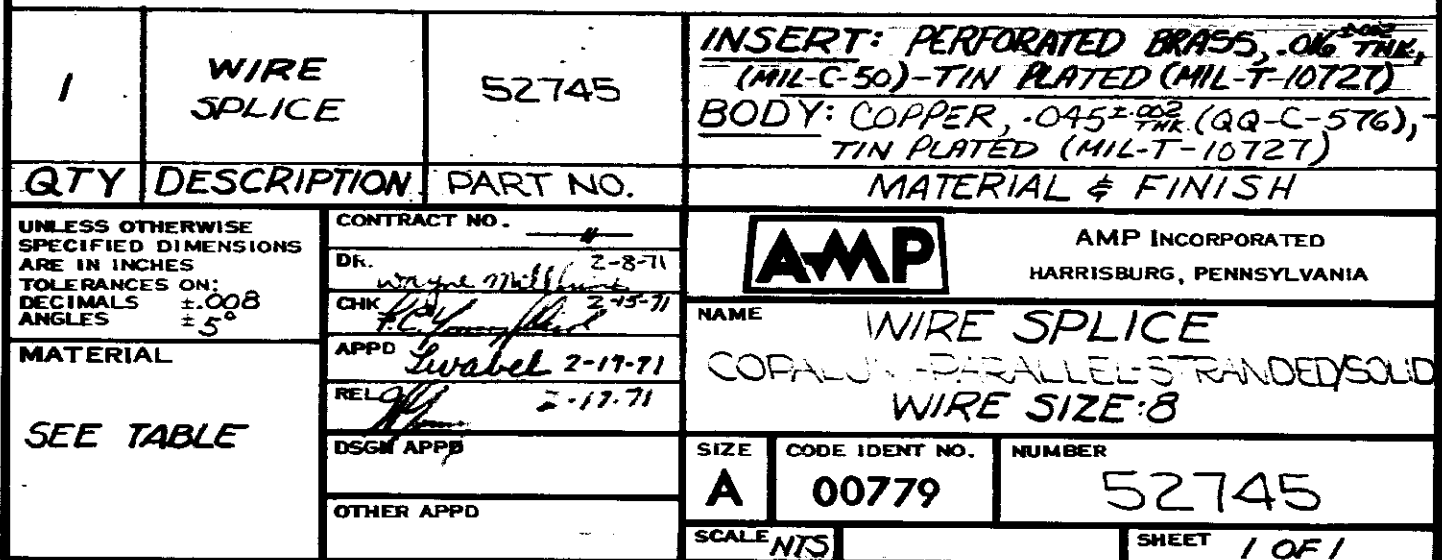 1
WIRE
SPLICE
52745
INSERT: PERFORATED BRASS, .016 ±.002 THK,
(MIL-C-50)-TIN PLATED (MIL-T-10727)
BODY: COPPER, .045 ±.002 THK. (QQ-C-576),
TIN PLATED (MIL-T-10727)
QTY DESCRIPTION PART NO. MATERIAL & FINISH
UNLESS OTHERWISE
SPECIFIED DIMENSIONS
ARE IN INCHES
TOLERANCES ON:
DECIMALS ±.008
ANGLES ±5°
MATERIAL
SEE TABLE
CONTRACT NO.
DR. 2-8-71
Wayne
CHK 2-15-71
APPD 2-17-71
REL 2-17-71
DSGN APPD
OTHER APPD
AMP
AMP INCORPORATED
HARRISBURG, PENNSYLVANIA
NAME
WIRE SPLICE
COPALUM-PARALLEL-STRANDED/SOLID
WIRE SIZE:8
SIZE
A
CODE IDENT NO.
00779
NUMBER
52745
SCALE NTS
SHEET 1 OF 1